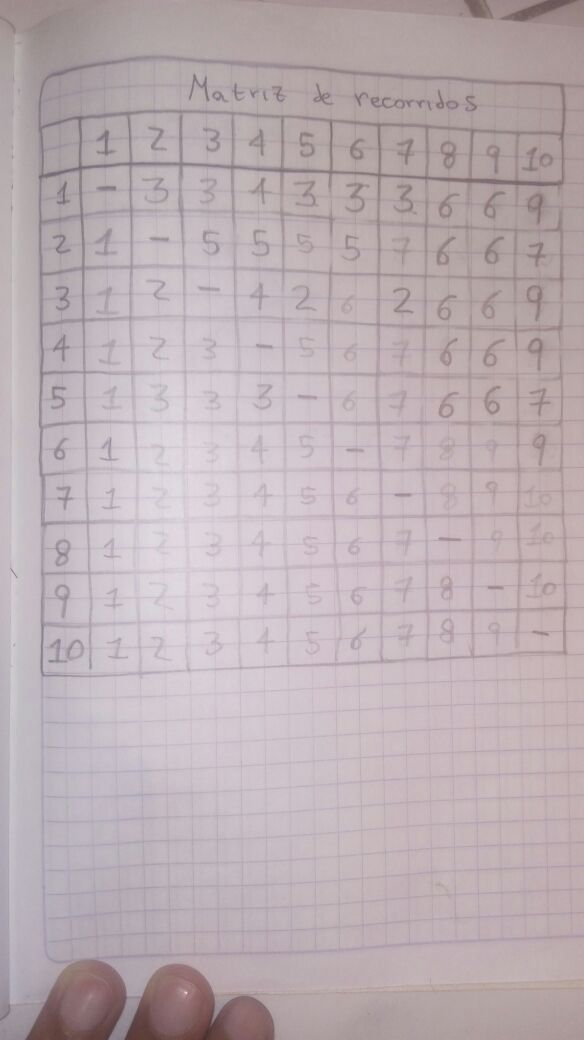 Matriz de recorridos
1 2 3 4 5 6 7 8 9 10
1 - 3 3 4 3 3 3 6 6 9
2 1 - 5 5 5 5 7 6 6 7
3 1 2 - 4 2 6 2 6 6 9
4 1 2 3 - 5 6 7 6 6 9
5 1 3 3 3 - 6 7 6 6 7
6 1 2 3 4 5 - 7 8 9 9
7 1 2 3 4 5 6 - 8 9 10
8 1 2 3 4 5 6 7 - 9 10
9 1 2 3 4 5 6 7 8 - 10
10 1 2 3 4 5 6 7 8 9 -